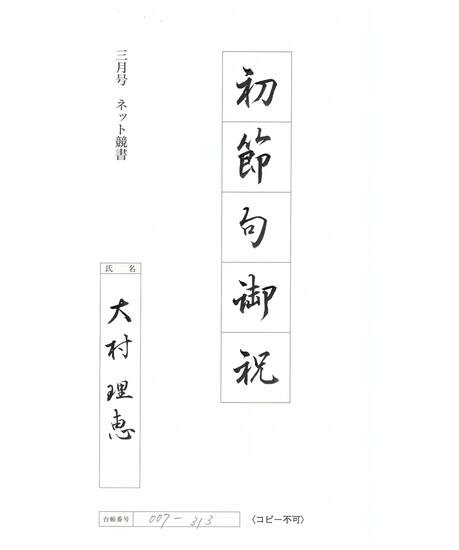 初節句御祝
三月号 ネット競書
氏名
大村理恵
台帳番号 007-313
〈コピー不可〉